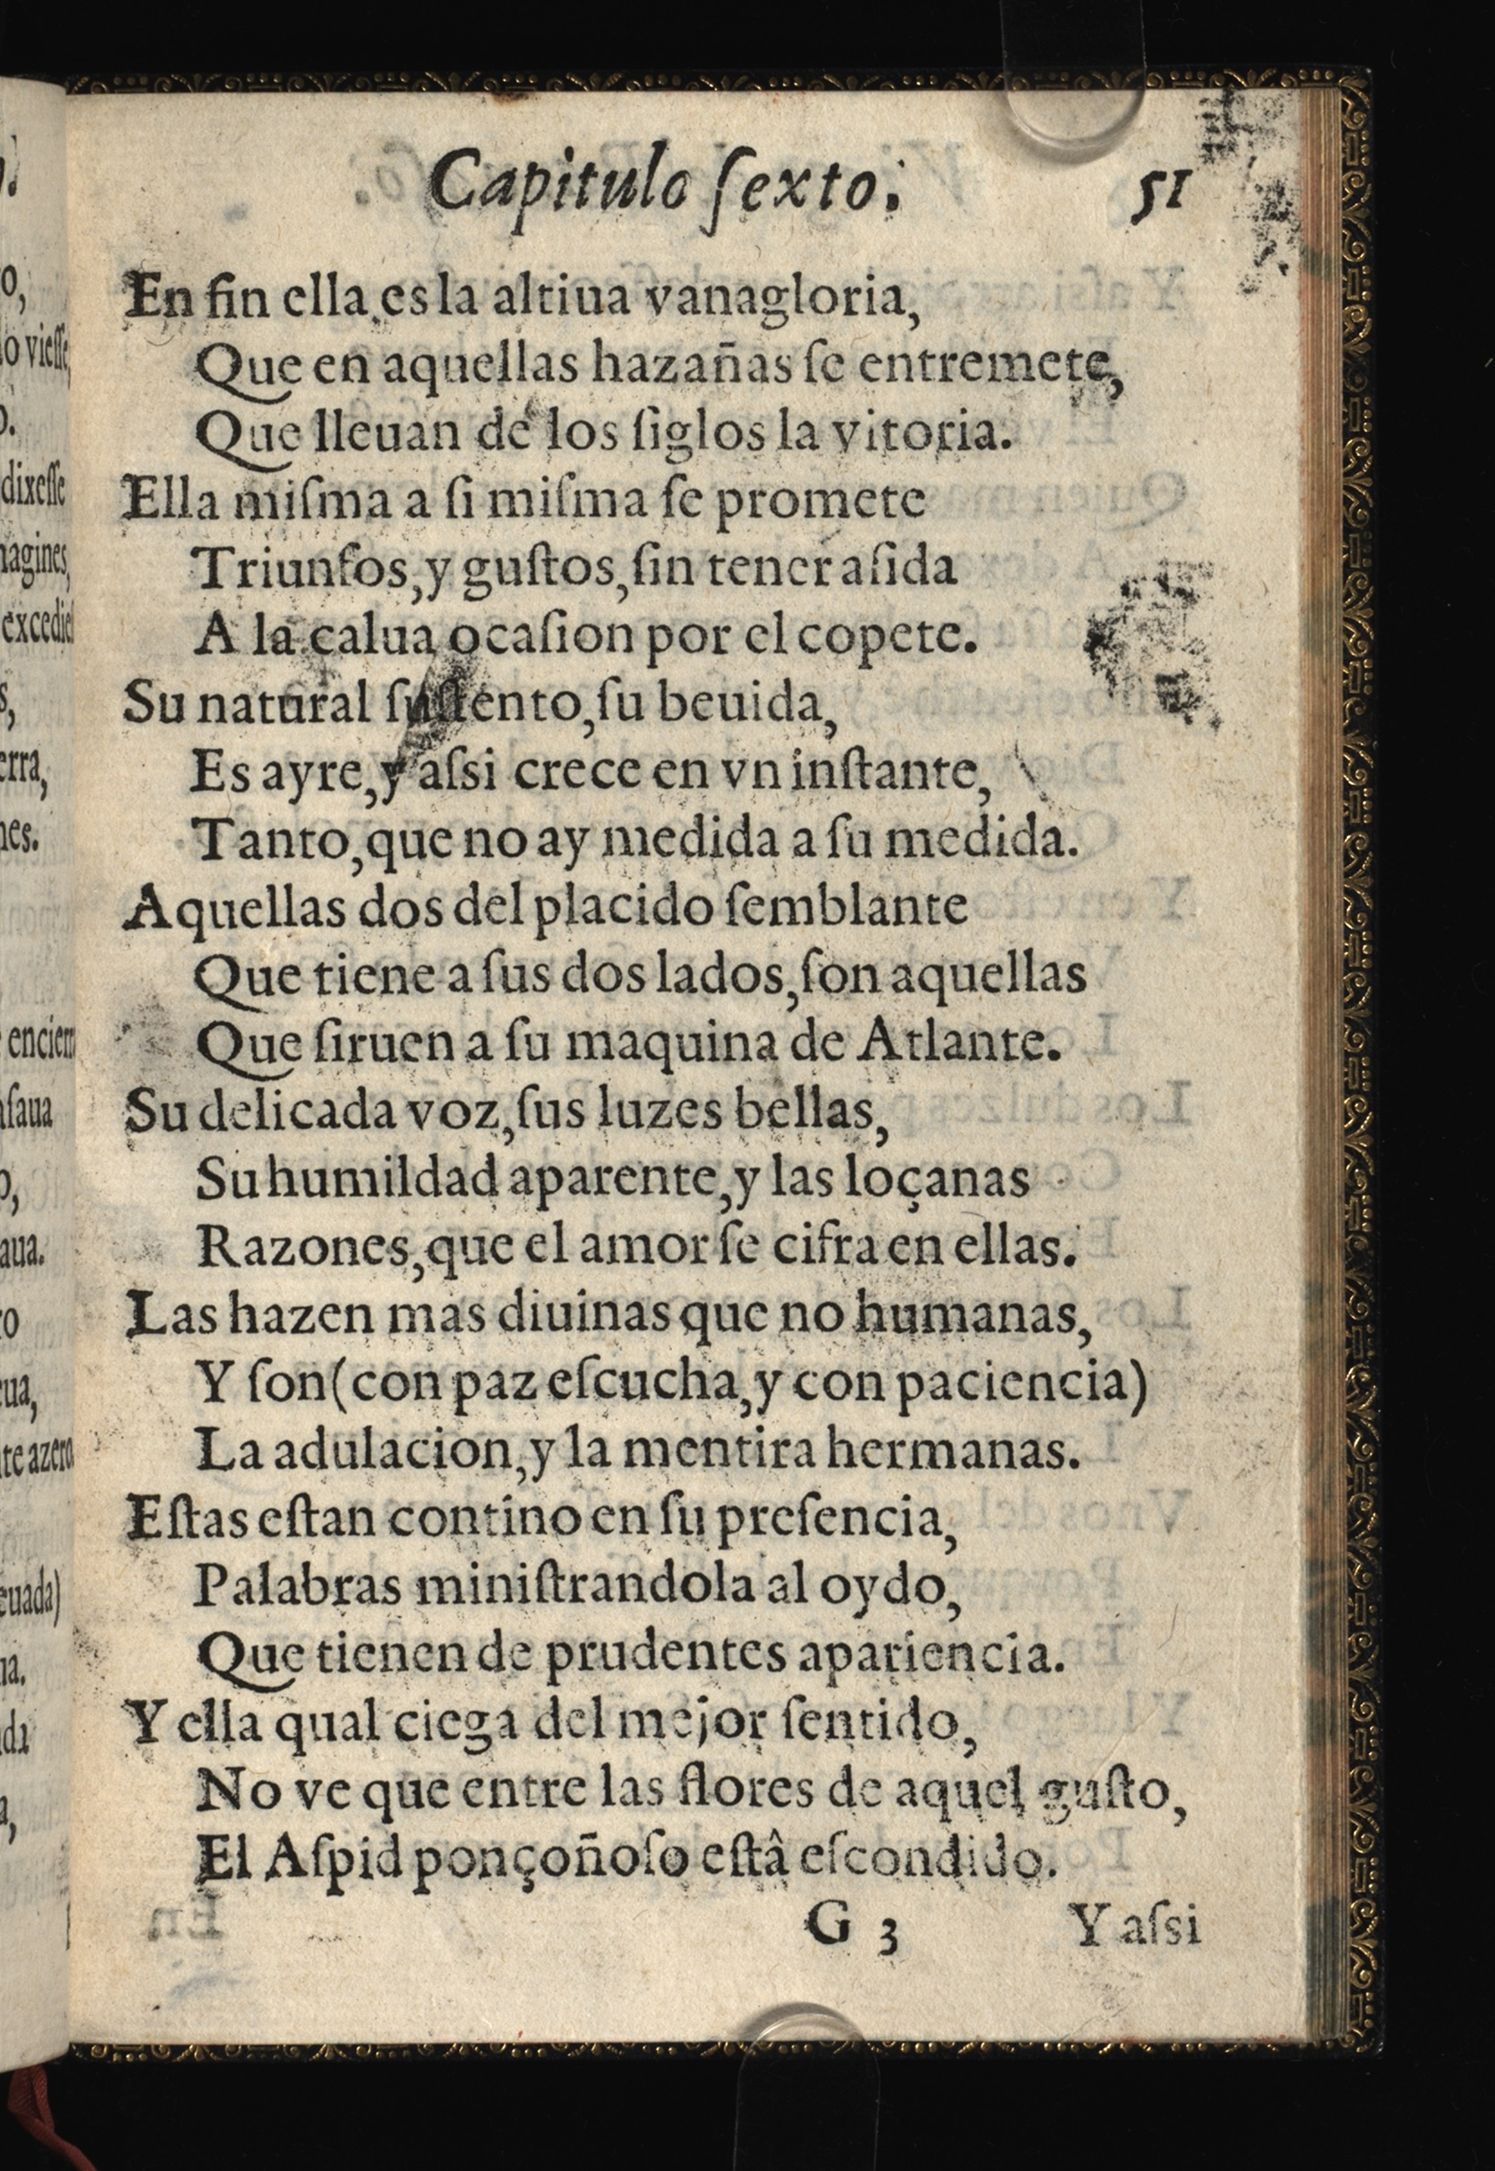 Capitulo ſexto. 51
En fin ella es la altiua vanagloria,
Que en aquellas hazañas ſe entremete,
Que lleuan de los ſiglos la vitoria.
Ella miſma a ſi miſma ſe promete
Triunfos, y guſtos, ſin tener aſida
A la calua ocaſion por el copete.
Su natural ſuſtento, ſu beuida,
Es ayre, y aſsi crece en vn inſtante,
Tanto, que no ay medida a ſu medida.
Aquellas dos del placido ſemblante
Que tiene a ſus dos lados, ſon aquellas
Que ſiruen a ſu maquina de Atlante.
Su delicada voz, ſus luzes bellas,
Su humildad aparente, y las loçanas
Razones, que el amor ſe cifra en ellas.
Las hazen mas diuinas que no humanas,
Y ſon (con paz eſcucha, y con paciencia)
La adulacion, y la mentira hermanas.
Eſtas eſtan contino en ſu preſencia,
Palabras miniſtrandola al oydo,
Que tienen de prudentes apariencia.
Y ella qual ciega del mejor ſentido,
No ve que entre las flores de aquel guſto,
El Aſpid ponçoñoſo eſtâ eſcondido.
G 3 Y aſsi